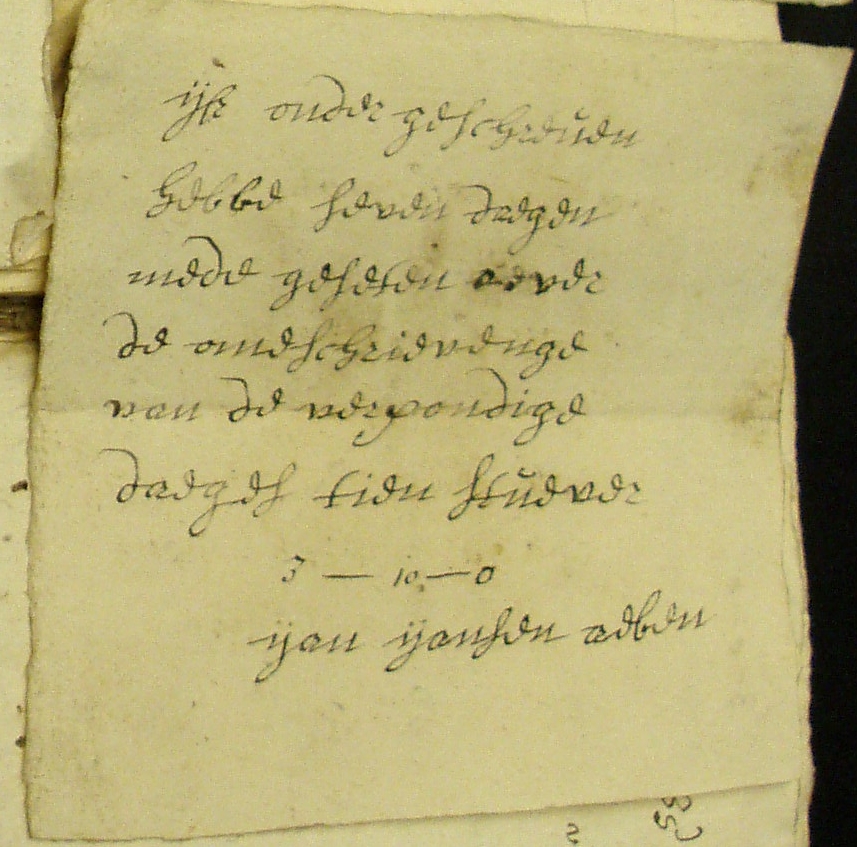 ijck onder geschreuen
hebbe seven daegen
mede geseten aever
de omeschrievenge
van de verpondige
daeges tien stuever
3 — 10 — 0
ijan ijansen aeben
58
2